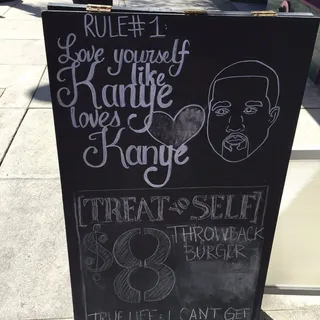 RULE #1:
Love yourself
like
Kanye
loves
Kanye
[TREAT YO SELF]
$8 THROWBACK
BURGER
TRUE LIFE: I CAN'T GET